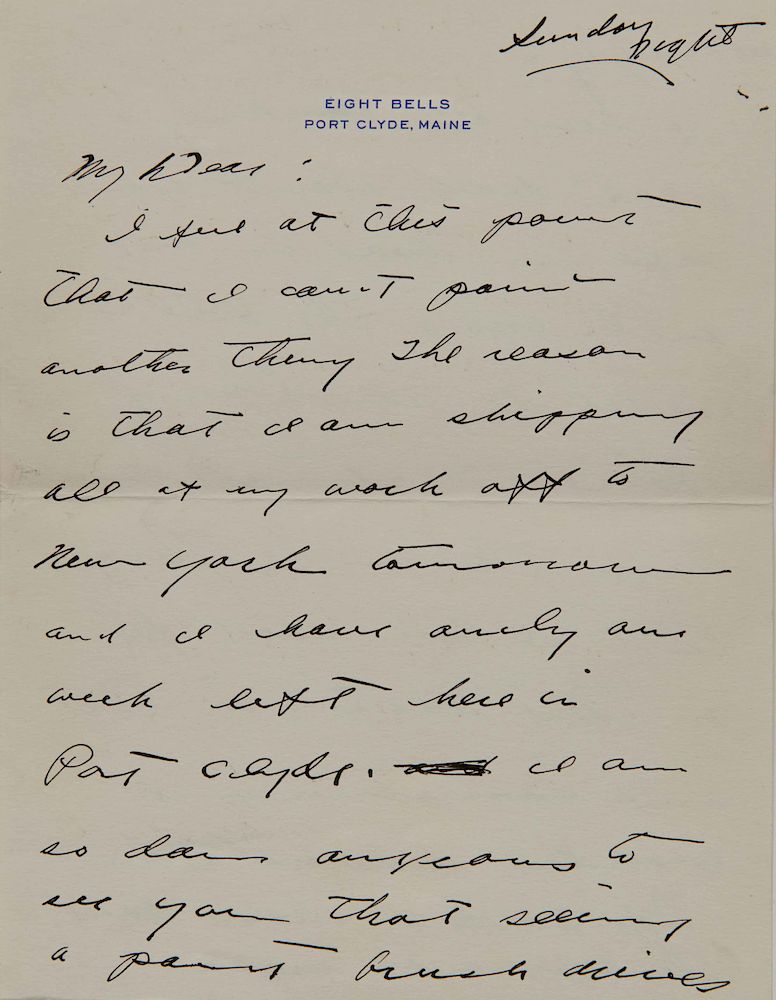 Sunday
night
EIGHT BELLS
PORT CLYDE, MAINE
My Dear :
I feel at this point
that I can't paint
another thing The reason
is that I am shipping
all of my work off to
New York tomorrow
and I have only one
week left here in
Port Clyde. I am
so damn anxious to
see you that seeing
a paint brush drives